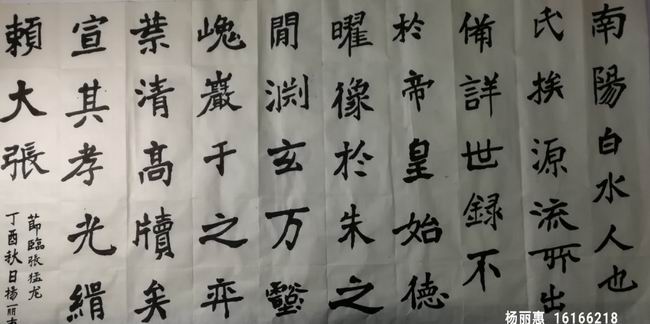 南陽白水人也
氏挨源流所出
備詳世録不
於帝皇始德
曜像於朱之
閒渊玄万壑
嵬巖于之弈
葉清高牘矣
宣其孝光緝
頼大張
節臨张猛龙
丁酉秋日楊丽
杨丽惠 16166218